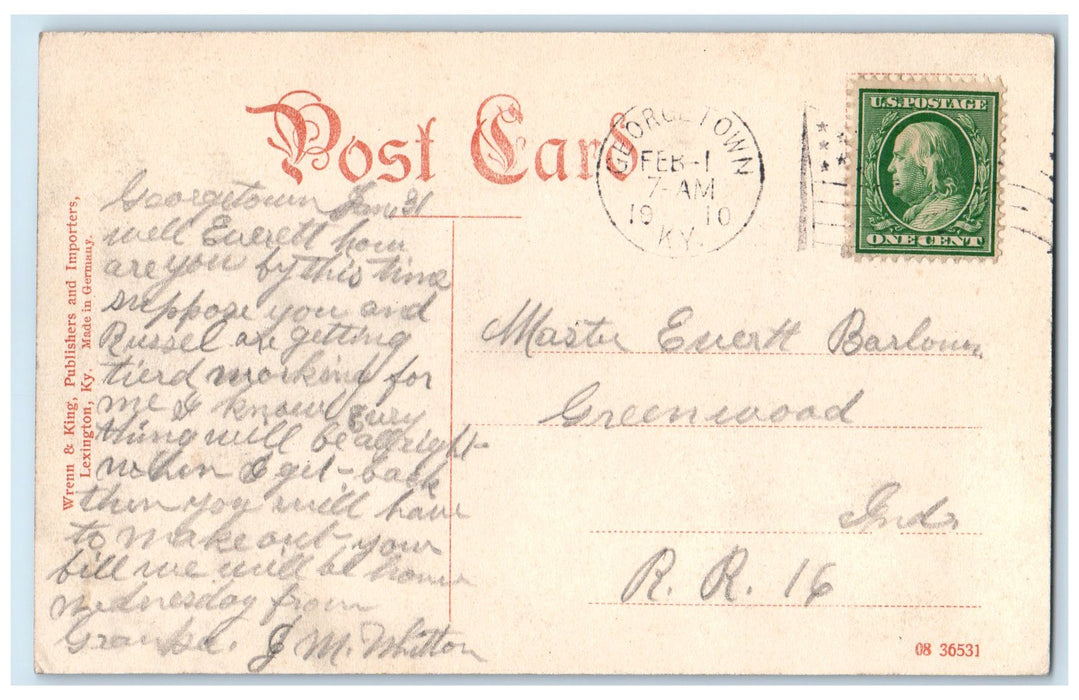 Post Card
GEORGETOWN
FEB-1
7-AM
19 10
KY.
U.S. POSTAGE
ONE CENT
Wrenn & King, Publishers and Importers,
Lexington, Ky. Made in Germany.
Georgetown Jan 31
well Everett how
are you by this time
suppose you and
Russel are getting
tierd working for
me I know Every
thing will be allright-
when I get-back
then you will have
to make out-your
bill we will be home
wednesday from
Granpa. J M. Whitton
Master Everett Barlown
Greenwood
Ind.
R. R. 16
08 36531